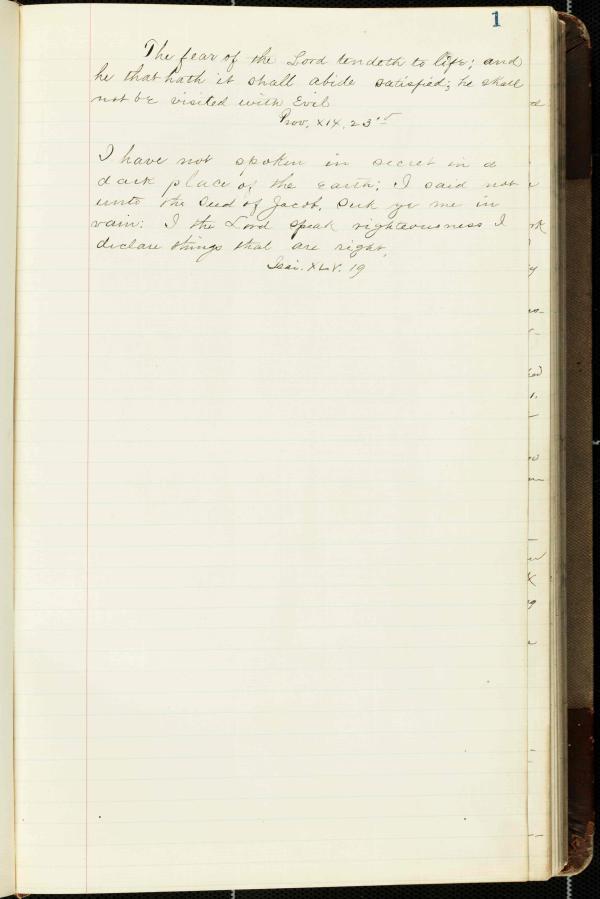 1
The fear of the Lord tendeth to life; and
he that hath it shall abide satisfied; he shall
not be visited with Evil
Prov. XIX. 23rd
I have not spoken in secret in a
dark place of the earth; I said not
unto the seed of Jacob, Seek ye me in
vain: I the Lord speak righteousness I
declare things that are right,
Isai. XLV. 19